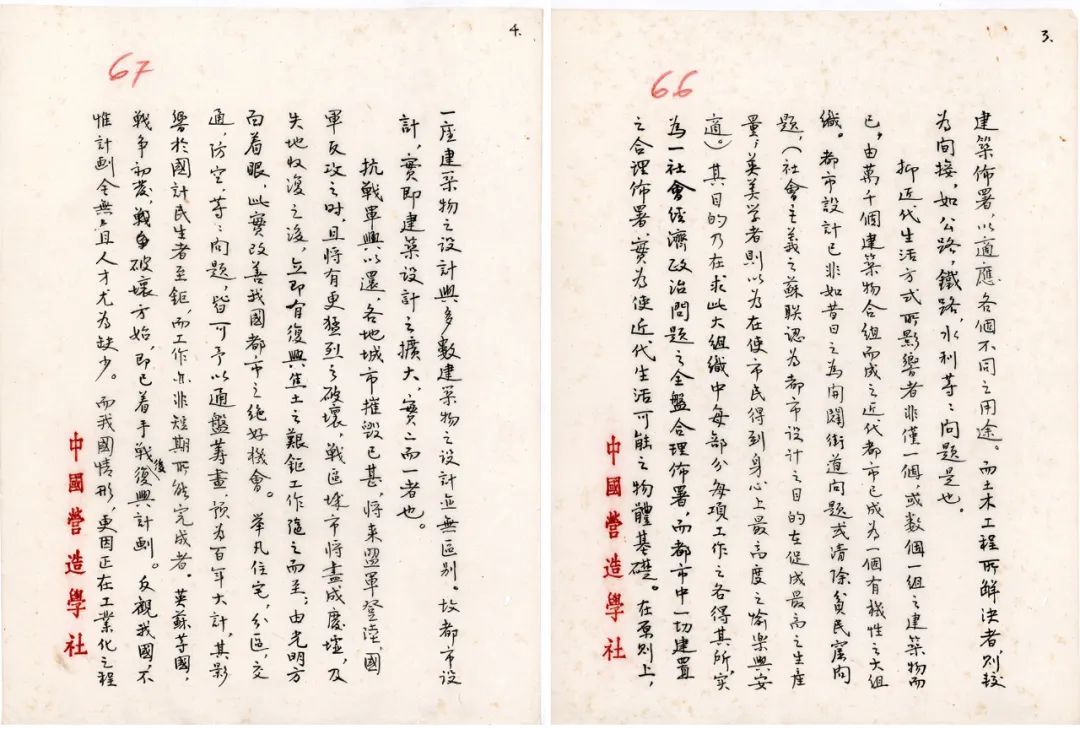 3.
66
建築佈署,以適應各個不同之用途。而土木工程所解決者,則較
為间接,如公路,鐵路,水利等々问題是也。
抑近代生活方式所影響者非僅一個,或数個一組之建築物而
已,由萬千個建築物合組而成之近代都市已成為一個有機性之大組
織。都市設計已非如昔日之為開闢街道问題或清除貧民窟问
題,(社會主義之蘇联認為都市設計之目的在促成最高之生産
量;英美学者則以為在使市民得到身心上最高度之愉樂與安
適)。其目的乃在求此大組織中每部分每項工作之各得其所,实
為一社會經濟政治問題之全盤合理佈署,而都市中一切建置
之合理佈署,實為使近代生活可能之物體基礎。在原則上,
中國營造學社
4.
67
一座建築物之設計與多數建築物之設計並無區别。故都市設
計,實即建築設計之擴大,實二而一者也。
抗戰軍興以還,各地城市摧毀已甚,將来盟軍登陸,國
軍反攻之时,且將有更猛烈之破壞,戰區城市將盡成廢墟,及
失地收復之後,立即有復興焦土之艱鉅工作隨之而至;由光明方
面着眼,此實改善我國都市之绝好機會。舉凡住宅,分區,交
通,防空,等々问題,皆可予以通盤籌畫,預为百年大計,其影
響於國計民生者至鉅,而工作亦非短期所能完成者。英蘇等國,
戰争初發,戰争破壞方始,即已着手戰後復興計劃。反觀我國,不
惟計劃全無,且人才尤为缺少。而我國情形,更因正在工業化之程
中國營造學社